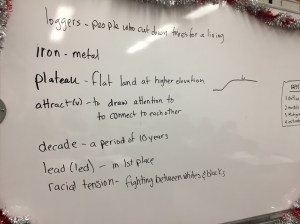 loggers - people who cut down trees for a living
iron - metal
plateau - flat land at higher elevation
attract (v) - to draw attention to
to connect to each other
decade - a period of 10 years
lead (led) - in 1st place
racial tension - fighting between whites & blacks